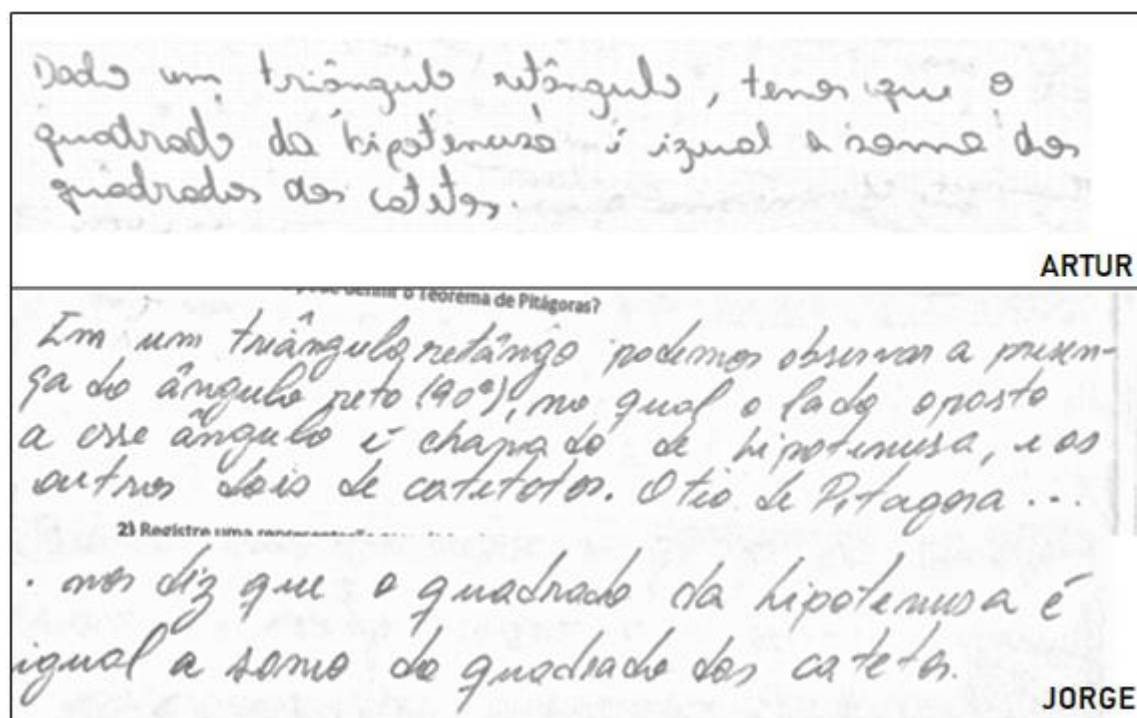 Dado um triângulo retângulo, temos que o
quadrado da hipotenusa é igual a soma dos
quadrados dos catetos.
ARTUR
definir o Teorema de Pitágoras?
Em um triângulo retângo podemos observar a presen-
ça do ângulo reto (90°), no qual o lado oposto
a esse ângulo é chamado de hipotenusa, e os
outros dois de catetotos. O teo. de Pitagora ...
2) Registre uma
. nos diz que o quadrado da hipotenusa é
igual a soma do quadrado dos catetos.
JORGE